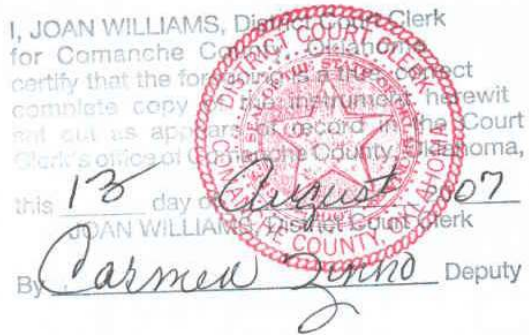 I, JOAN WILLIAMS, District Court Clerk
for Comanche County, Oklahoma
certify that the foregoing is a true, correct
complete copy of the instrument herewit
set out as appears of record in the Court
Clerk's office of Comanche County, Oklahoma,
this 13 day of August 2007
JOAN WILLIAMS, District Court Clerk
By Carmen Deputy
DISTRICT COURT CLERK
COMANCHE COUNTY, OKLAHOMA